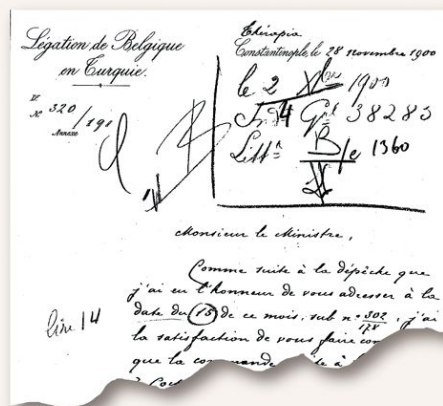 Légation de Belgique
en Turquie.
N° 320/191
Annexe
Thérapia
Constantinople, le 28 novembre 1900
le 2 Xbre 1900
4 Gal 38283
Litt a B/e 1360
Monsieur le Ministre,
Comme suite à la dépêche que
j'ai eu l'honneur de vous adresser à la
date du (15) de ce mois, sub n° 302/178, j'ai
lire 14
la satisfaction de vous faire
que la commande à